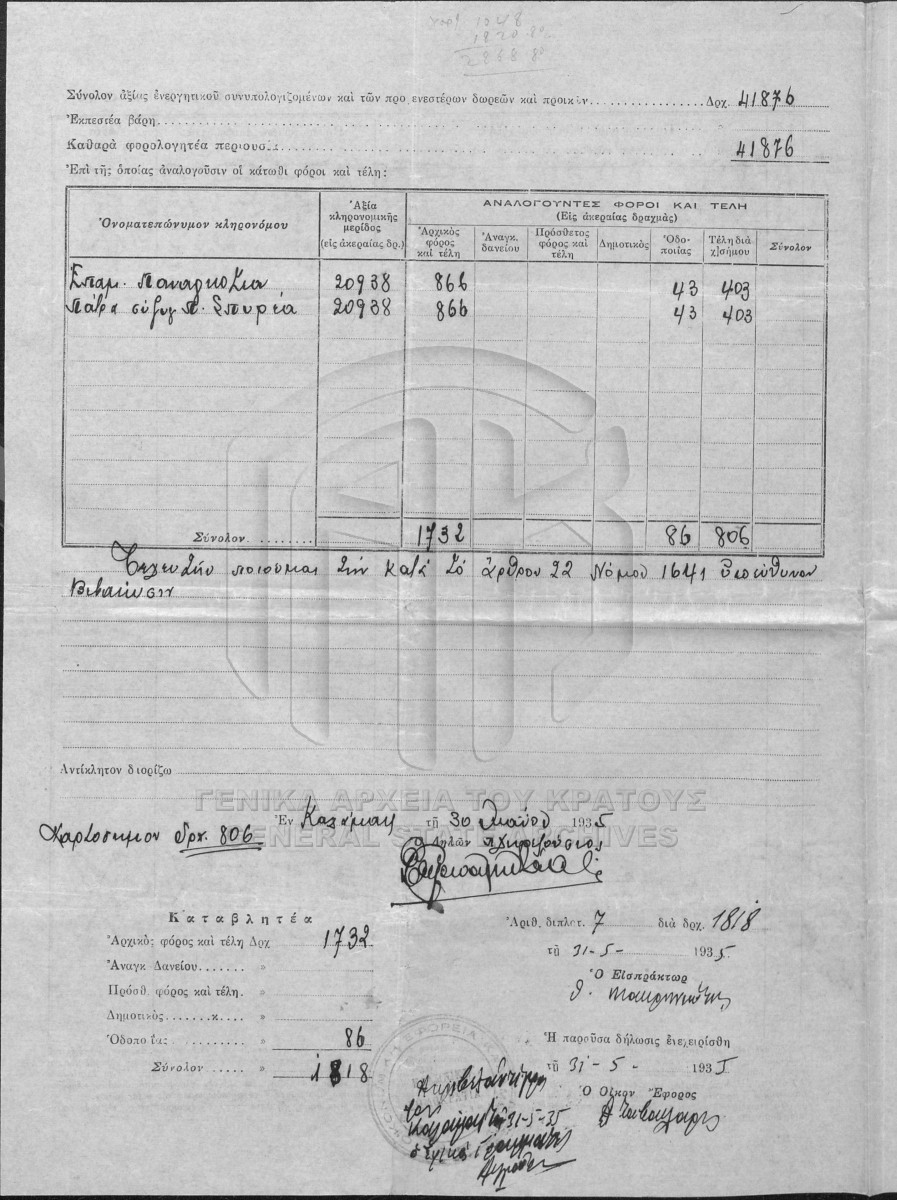 1048
1820.80
2868 80
Σύνολον ἀξίας ἐνεργητικοῦ συνυπολογιζομένων καὶ τῶν προγενεστέρων δωρεῶν καὶ προικῶν Δρχ. 41876
Ἐκπεστέα βάρη »
Καθαρὰ φορολογητέα περιουσία 41876
Ἐπὶ τῆς ὁποίας ἀναλογοῦσιν οἱ κάτωθι φόροι καὶ τέλη:
Ὀνοματεπώνυμον κληρονόμου
Ἀξία κληρονομικῆς μερίδος (εἰς ἀκεραίας δρ.)
ΑΝΑΛΟΓΟΥΝΤΕΣ ΦΟΡΟΙ ΚΑΙ ΤΕΛΗ
(Εἰς ἀκεραίας δραχμάς)
Ἀρχικὸς φόρος καὶ τέλη
Ἀναγκ. δανείου
Πρόσθετος φόρος καὶ τέλη
Δημοτικὸς
Ὁδοποιΐας
Τέλη διὰ χ)σήμου
Σύνολον
Ἐπαμ. 20938 866 43 403
σύζυγ Π. Σπυρέα 20938 866 43 403
Σύνολον 1732 86 806
κατὰ τὸ ἄρθρον 22 Νόμου 1641 ὑπεύθυνον
Βεβαίωσιν
Ἀντίκλητον διορίζω
ΓΕΝΙΚΑ ΑΡΧΕΙΑ ΤΟΥ ΚΡΑΤΟΥΣ
GENERAL STATE ARCHIVES
Χαρτόσημον δρχ. 806
Ἐν Καλάμαις τῇ 30 Μαΐου 1935
Ὁ Δηλῶν
Καταβλητέα
Ἀρχικὸς φόρος καὶ τέλη Δρχ 1732
Ἀναγκ Δανείου »
Πρόσθ. φόρος καὶ τέλη. »
Δημοτικὸς »
Ὁδοποιΐας » 86
Σύνολον » 1818
Ἀριθ. διπλοτ. 7 διὰ δρχ. 1818
τῇ 31-5- 1935
Ὁ Εἰσπράκτωρ
Ἡ παροῦσα δήλωσις ἐνεχειρίσθη
τῇ 31-5- 1935
Ὁ Οἰκον Ἔφορος
31-5-35